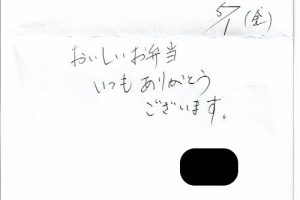 5/1(金)
おいしいお弁当
いつもありがとう
ございます。